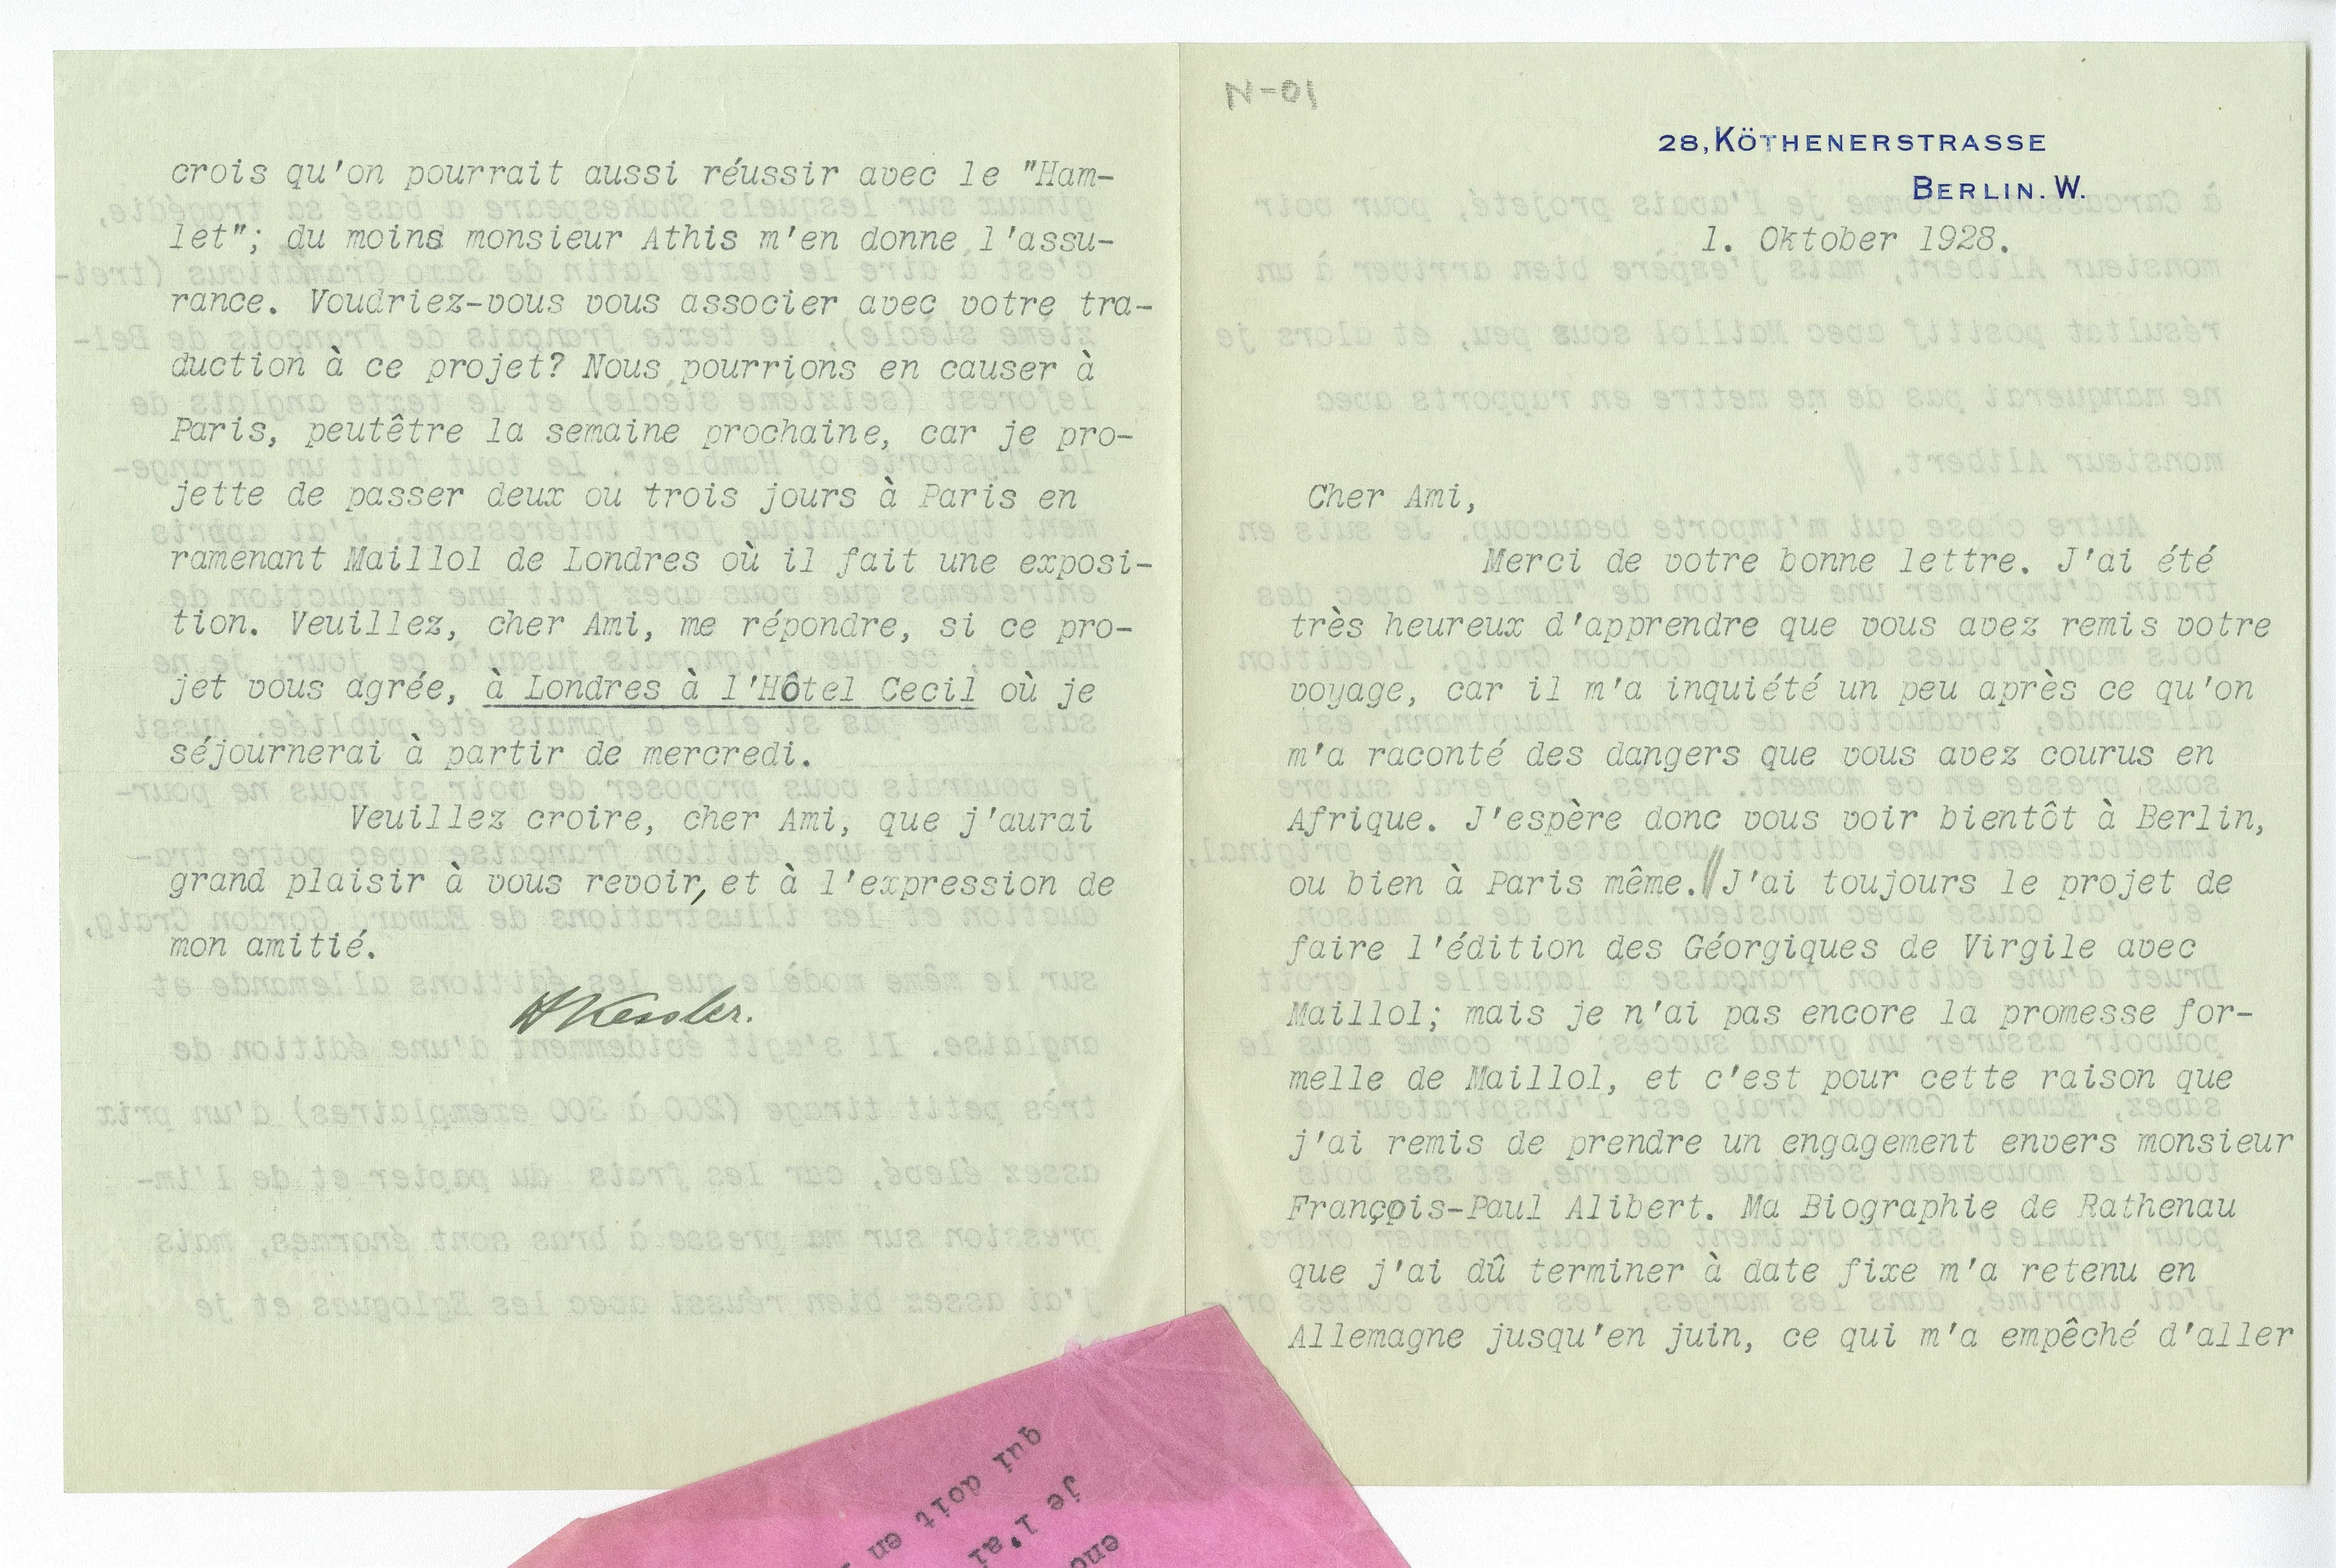 N-01
28, KÖTHENERSTRASSE
BERLIN. W.
1. Oktober 1928.
Cher Ami,
Merci de votre bonne lettre. J'ai été
très heureux d'apprendre que vous avez remis votre
voyage, car il m'a inquiété un peu après ce qu'on
m'a raconté des dangers que vous avez courus en
Afrique. J'espère donc vous voir bientôt à Berlin,
ou bien à Paris même.// J'ai toujours le projet de
faire l'édition des Géorgiques de Virgile avec
Maillol; mais je n'ai pas encore la promesse for-
melle de Maillol, et c'est pour cette raison que
j'ai remis de prendre un engagement envers monsieur
François-Paul Alibert. Ma Biographie de Rathenau
que j'ai dû terminer à date fixe m'a retenu en
Allemagne jusqu'en juin, ce qui m'a empêché d'aller
crois qu'on pourrait aussi réussir avec le "Ham-
let"; du moins monsieur Athis m'en donne l'assu-
rance. Voudriez-vous vous associer avec votre tra-
duction à ce projet? Nous pourrions en causer à
Paris, peutêtre la semaine prochaine, car je pro-
jette de passer deux ou trois jours à Paris en
ramenant Maillol de Londres où il fait une exposi-
tion. Veuillez, cher Ami, me répondre, si ce pro-
jet vous agrée, à Londres à l'Hôtel Cecil où je
séjournerai à partir de mercredi.
Veuillez croire, cher Ami, que j'aurai
grand plaisir à vous revoir, et à l'expression de
mon amitié.
HKessler.
qui doit en
je l'ai